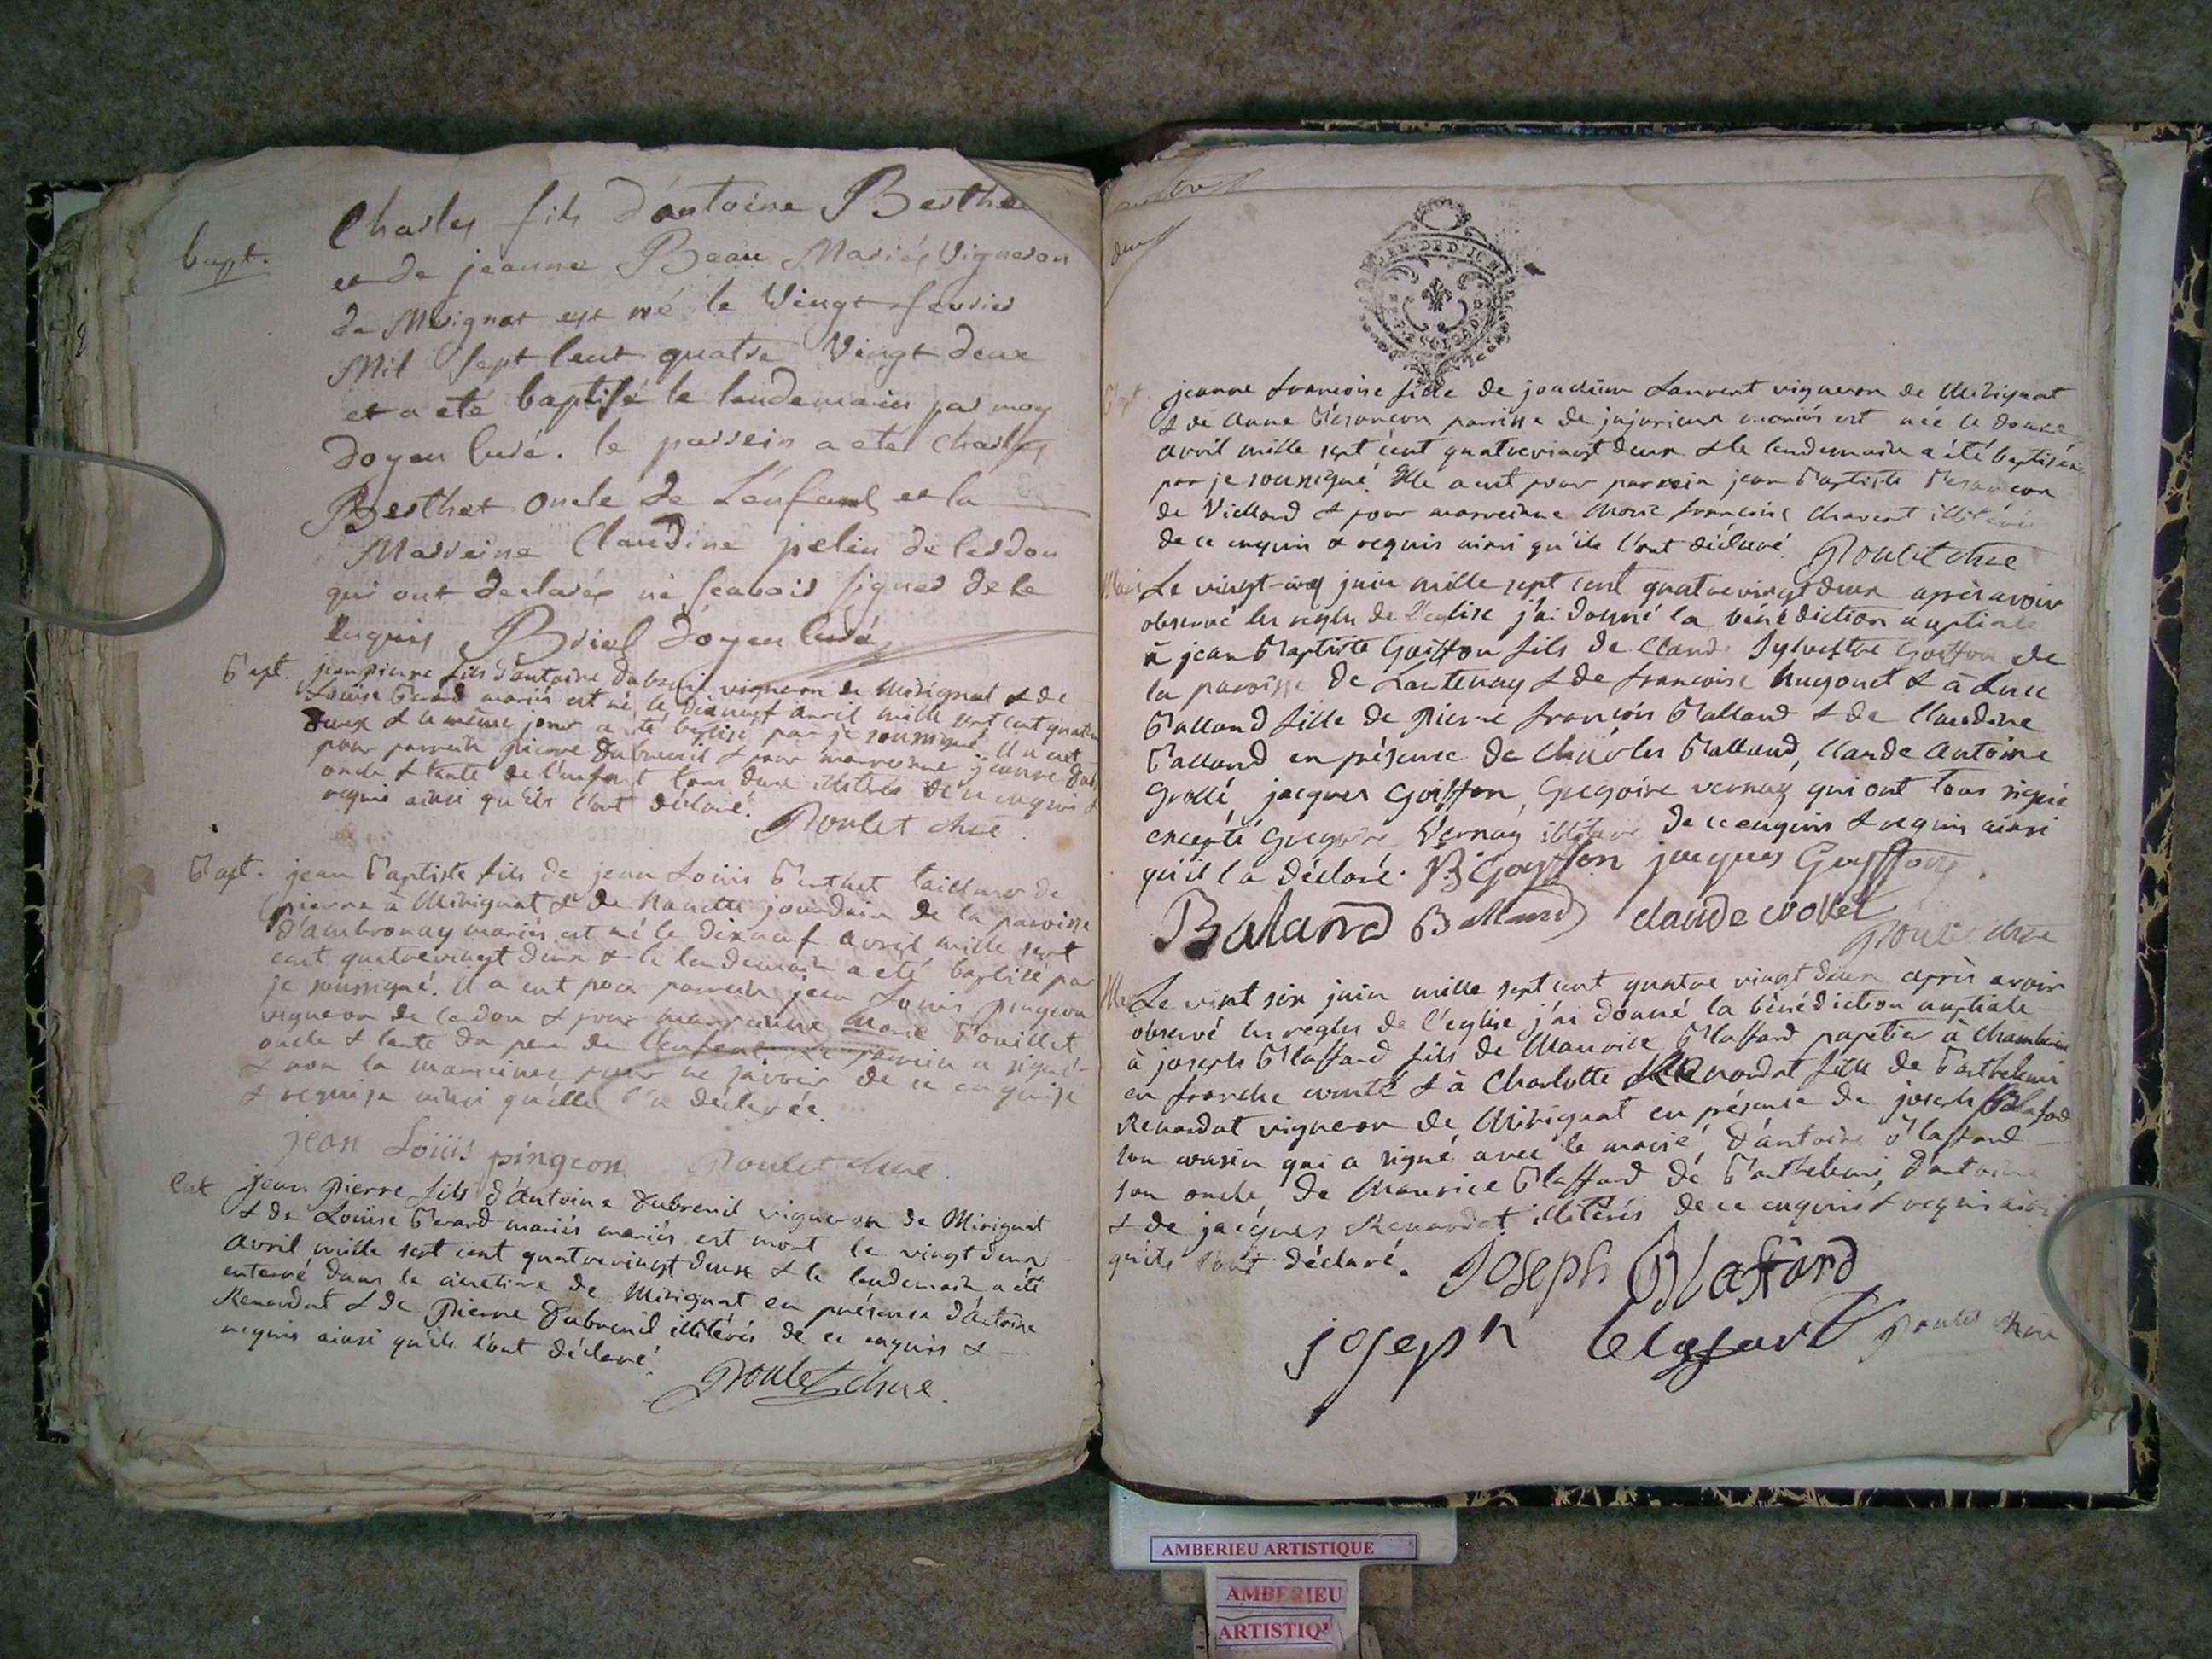 bapt.
Charles fils d'antoine Berthe
et de jeanne Beau Mariés Vigneron
de Merignat est né le Vingt fevrier
Mil sept Cent quatre Vingt deux
et a eté baptisé le lendemain par moy
doyen Curé. le parrein a eté Charles
Berthet oncle de L'enfant et la
Marreine Claudine pelin de Cerdon
qui ont declarés ne scavoir signer de ce
Enquis Briel doyen Curé
Bapt.
jean pierre fils d'antoine dubreuil vigneron de Mérignat & de
Louise Berard mariés est né le dixneuf avril mille sept cent quatre
deux & le même jour a été baptisé par je soussigné. Il a eut
pour parrein pierre dubreuil & pour marreinne jeanne dub
oncle & tante de l'enfant tous deux illitérés de ce enquis &
requis ainsi qu'ils l'ont déclaré. Poulet curé
Bapt.
jean Baptiste fils de jean Louis Berthet tailleur de
pierre à Mérignat & de Nanette jourdain de la paroisse
d'ambronay mariés est né le dixneuf avril mille sept
cent quatrevingt deux & le lendemain a eté baptisé par
je soussigné. Il a eut pour parrein jean Louis pingeon
vigneron de Cerdon & pour marreinne Marie Bouillet
oncle & tante du pere de l'enfant. Le parrein a signé
& non la marreinne pour ne savoir de ce enquise
& requise ainsi qu'elle l'a declarée.
jean Loüis pingeon Poulet curé
Ent
Jean Pierre fils d'Antoine dubreuil vigneron de Mérignat
& de Louise Berard mariés mariés est mort le vingt deux
avril mille sept cent quatrevingt deux & le lendemain a été
enterré dans le cimetiere de Mérignat en présence d'Antoine
Renardat & de Pierre Dubreuil illitérés de ce enquis &
requis ainsi qu'ils l'ont déclaré.
Poulet curé.
deux
GEN. DE DIJON
Bapt.
jeanne francoise fille de joachim Laurent vigneron de Mérignat
& de Anne Besançon paroisse de jujurieux mariés est née le douze
avril mille sept cent quatrevingt deux & le lendemain a été baptisée
par je soussigné. Elle a eut pour parrein jean Baptiste Besançon
de Viellard & pour marreinne Marie francoise Charvet illitérés
de ce enquis & requis ainsi qu'ils l'ont déclaré. Poulet curé
Mar
Le vingt-cinq juin mille sept cent quatrevingt deux après avoir
observé les regles de l'eglise j'ai donné la bénédiction nuptiale
à jean Baptiste Goiffon fils de Claude Sylvestre Goiffon de
la paroisse de Lantenay & de francoise hugonet & à Luce
Balland fille de Pierre francois Balland & de Claudine
Balland en présence de Charles Balland, Claude Antoine
Grollé, jacques Goiffon, Gregoire vernay qui ont tous signé
excepté Gregoire Vernay illitéré de ce enquis & requis ainsi
qu'il l'a déclaré. B Goyffon jacques Goyffon
Baland Balland claude Poulet curé
Mar
Le vint six juin mille sept cent quatre vingt deux après avoir
observé les regles de l'eglise j'ai donné la bénédiction nuptiale
à joseph Blaffard fils de Maurice Blaffard papetier à
en franche comté & à Charlotte Renardat fille de Barthelemi
Renardat vigneron de Mérignat en présence de joseph Blafard
son cousin qui a signé avec le marié, d'antoine Blaffard
son oncle, de Maurice Blaffard de Barthelemi, d'antoine
& de jacques Renardat illitérés de ce enquis & requis ainsi
qu'ils l'ont déclaré. Joseph Blaffard
joseph blafard Poulet curé
AMBERIEU ARTISTIQUE
AMBERIEU
ARTISTIQ